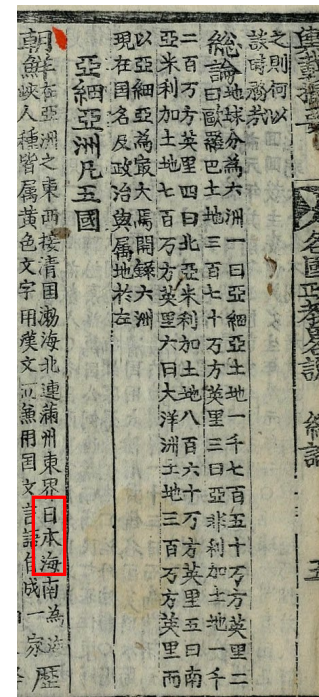 輿載撮要 各國政教畧説 總論 五
之則何以
談時務哉
總論 地球分為六洲一曰亞細亞土地一千七百五十万方英里二
曰歐羅巴土地三百七十万方英里三曰亞非利加土地一千
二百万方英里四曰北亞米利加土地八百六十万方英里五曰南
亞米利加土地七百万方英里六曰大洋洲土地三百万方英里而
以亞細亞為最大焉開錄六洲
現在国名及政治與属地於左
亞細亞洲凡五國
朝鮮 在亞洲之東西接清国渤海北連蒲州東界日本海南為海
峽人種皆属黄色文字用漢文而兼用国文言語自成一家 歷